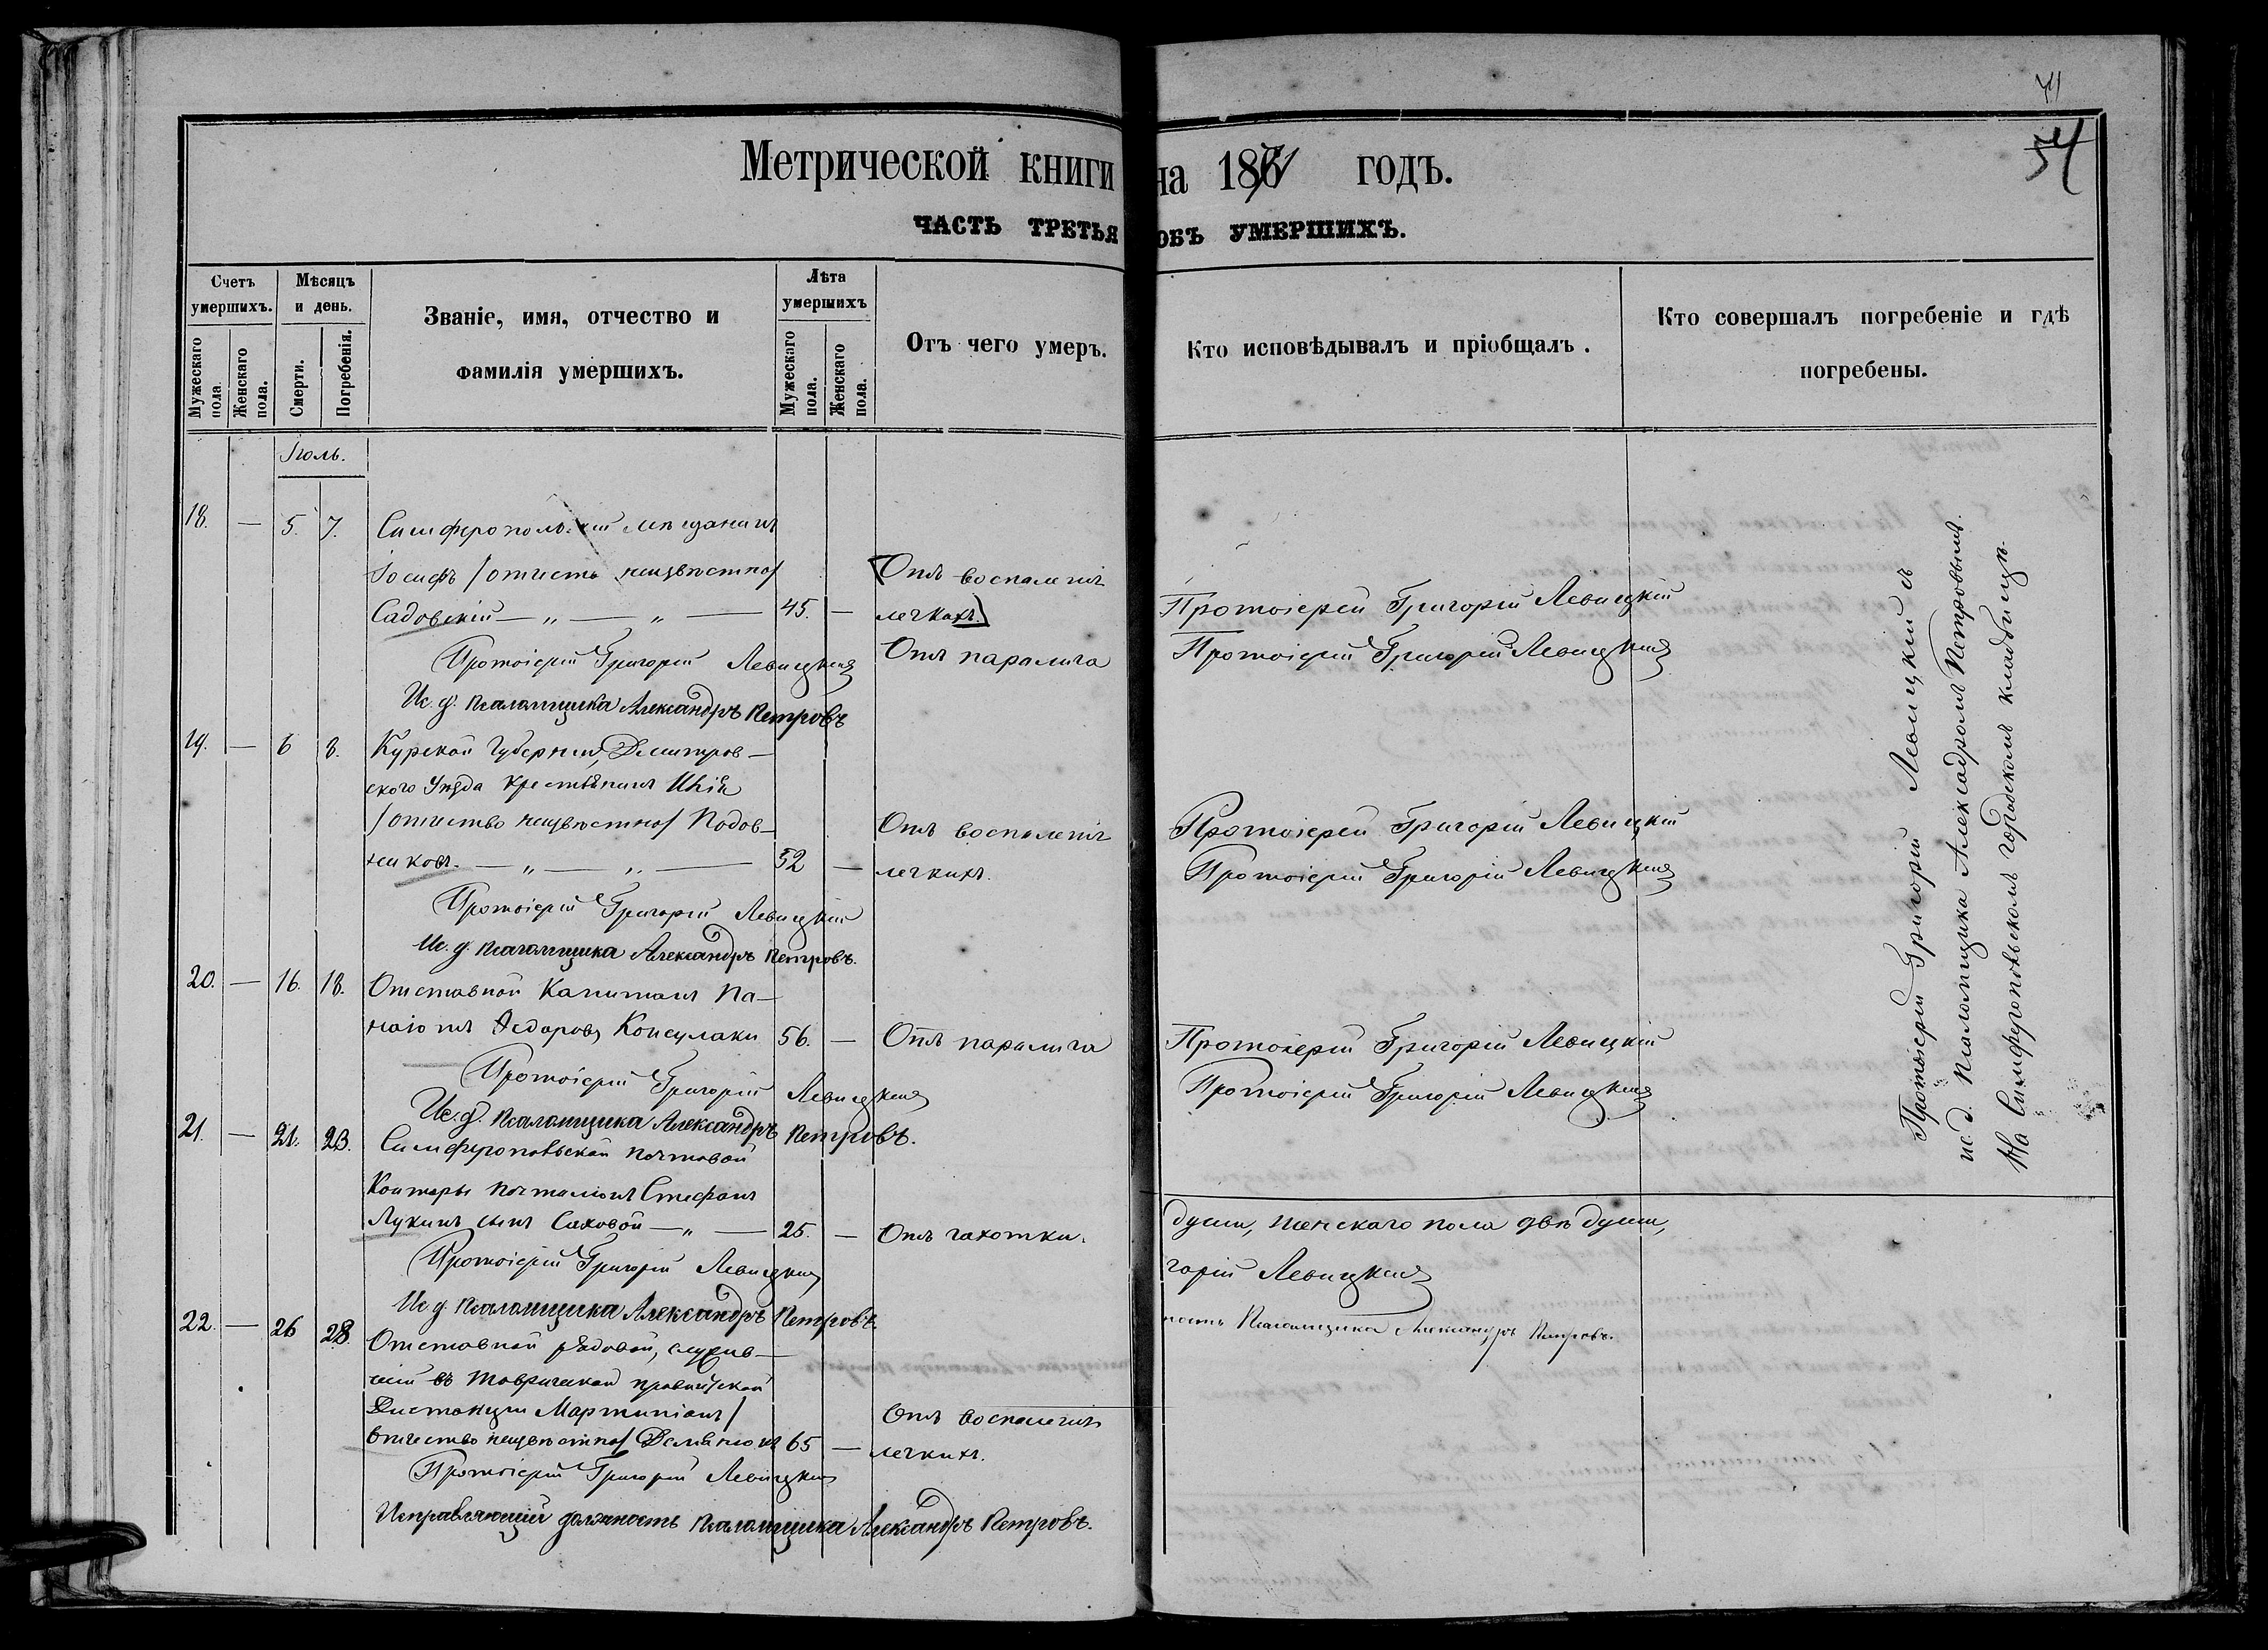 71
54
Метрической книги на 1871 годъ.
ЧАСТЬ ТРЕТЬЯ ОБЪ УМЕРШИХЪ.
Счетъ умершихъ.
Мѣсяцъ и день.
Званіе, имя, отчество и фамилія умершихъ.
Лѣта умершихъ
Отъ чего умеръ.
Кто исповѣдывалъ и пріобщалъ.
Кто совершалъ погребеніе и гдѣ погребены.
Мужескаго пола.
Женскаго пола.
Смерти.
Погребенія.
Мужескаго пола.
Женскаго пола.
Іюль.
18. — 5. 7. Симферопольскій мѣщанинъ
Іосифъ /отчество неизвѣстно/ Отъ воспаленія
Садовскій — „ — „ — 45. — легкихъ. Протоіерей Григорій Левицкій
Протоіерей Григорій Левицкій Отъ паралича Протоіерей Григорій Левицкій
Ис. д. Псаломщика Александръ Петровъ
19. — 6 8. Курской Губерніи, Дмитров—
скаго Уѣзда крестьянинъ
/отчество неизвѣстно/ Подов— Отъ воспаленія Протоіерей Григорій Левицкій
никовъ. — „ — „ — 52 — легкихъ. Протоіерей Григорій Левицкій
Протоіерей Григорій Левицкій
Ис. д. Псаломщика Александръ Петровъ.
20. — 16. 18. Отставной Капитанъ Па—
наіотъ Ѳедоровъ Консулаки 56. — Отъ паралича Протоіерей Григорій Левицкій
Протоіерей Григорій Левицкій Протоіерей Григорій Левицкій
Ис. д. Псаломщика Александръ Петровъ.
21. — 21. 23. Симферопольской почтовой
Конторы почталіонъ Стефанъ
Лукинъ сынъ Саховой — „ — 25. — Отъ чахотки. души, женскаго пола двѣ души,
Протоіерей Григорій Левицкій горій Левицкій
Ис. д. Псаломщика Александръ Петровъ. ность Псаломщика Александръ Петровъ.
22. — 26 28. Отставной рядовой, служив—
шій въ Таврической
Дистанціи Мартиніанъ / Отъ воспаленія
отчество неизвѣстно/ Демянюкъ 65 — легкихъ.
Протоіерей Григорій Левицкій
Исправляющій должность Псаломщика Александръ Петровъ.
Протоіерей Григорій Левицкій съ
ис. д. Псаломщика Алексадромъ Петровымъ.
На Симферопольскомъ городскомъ кладбищѣ.